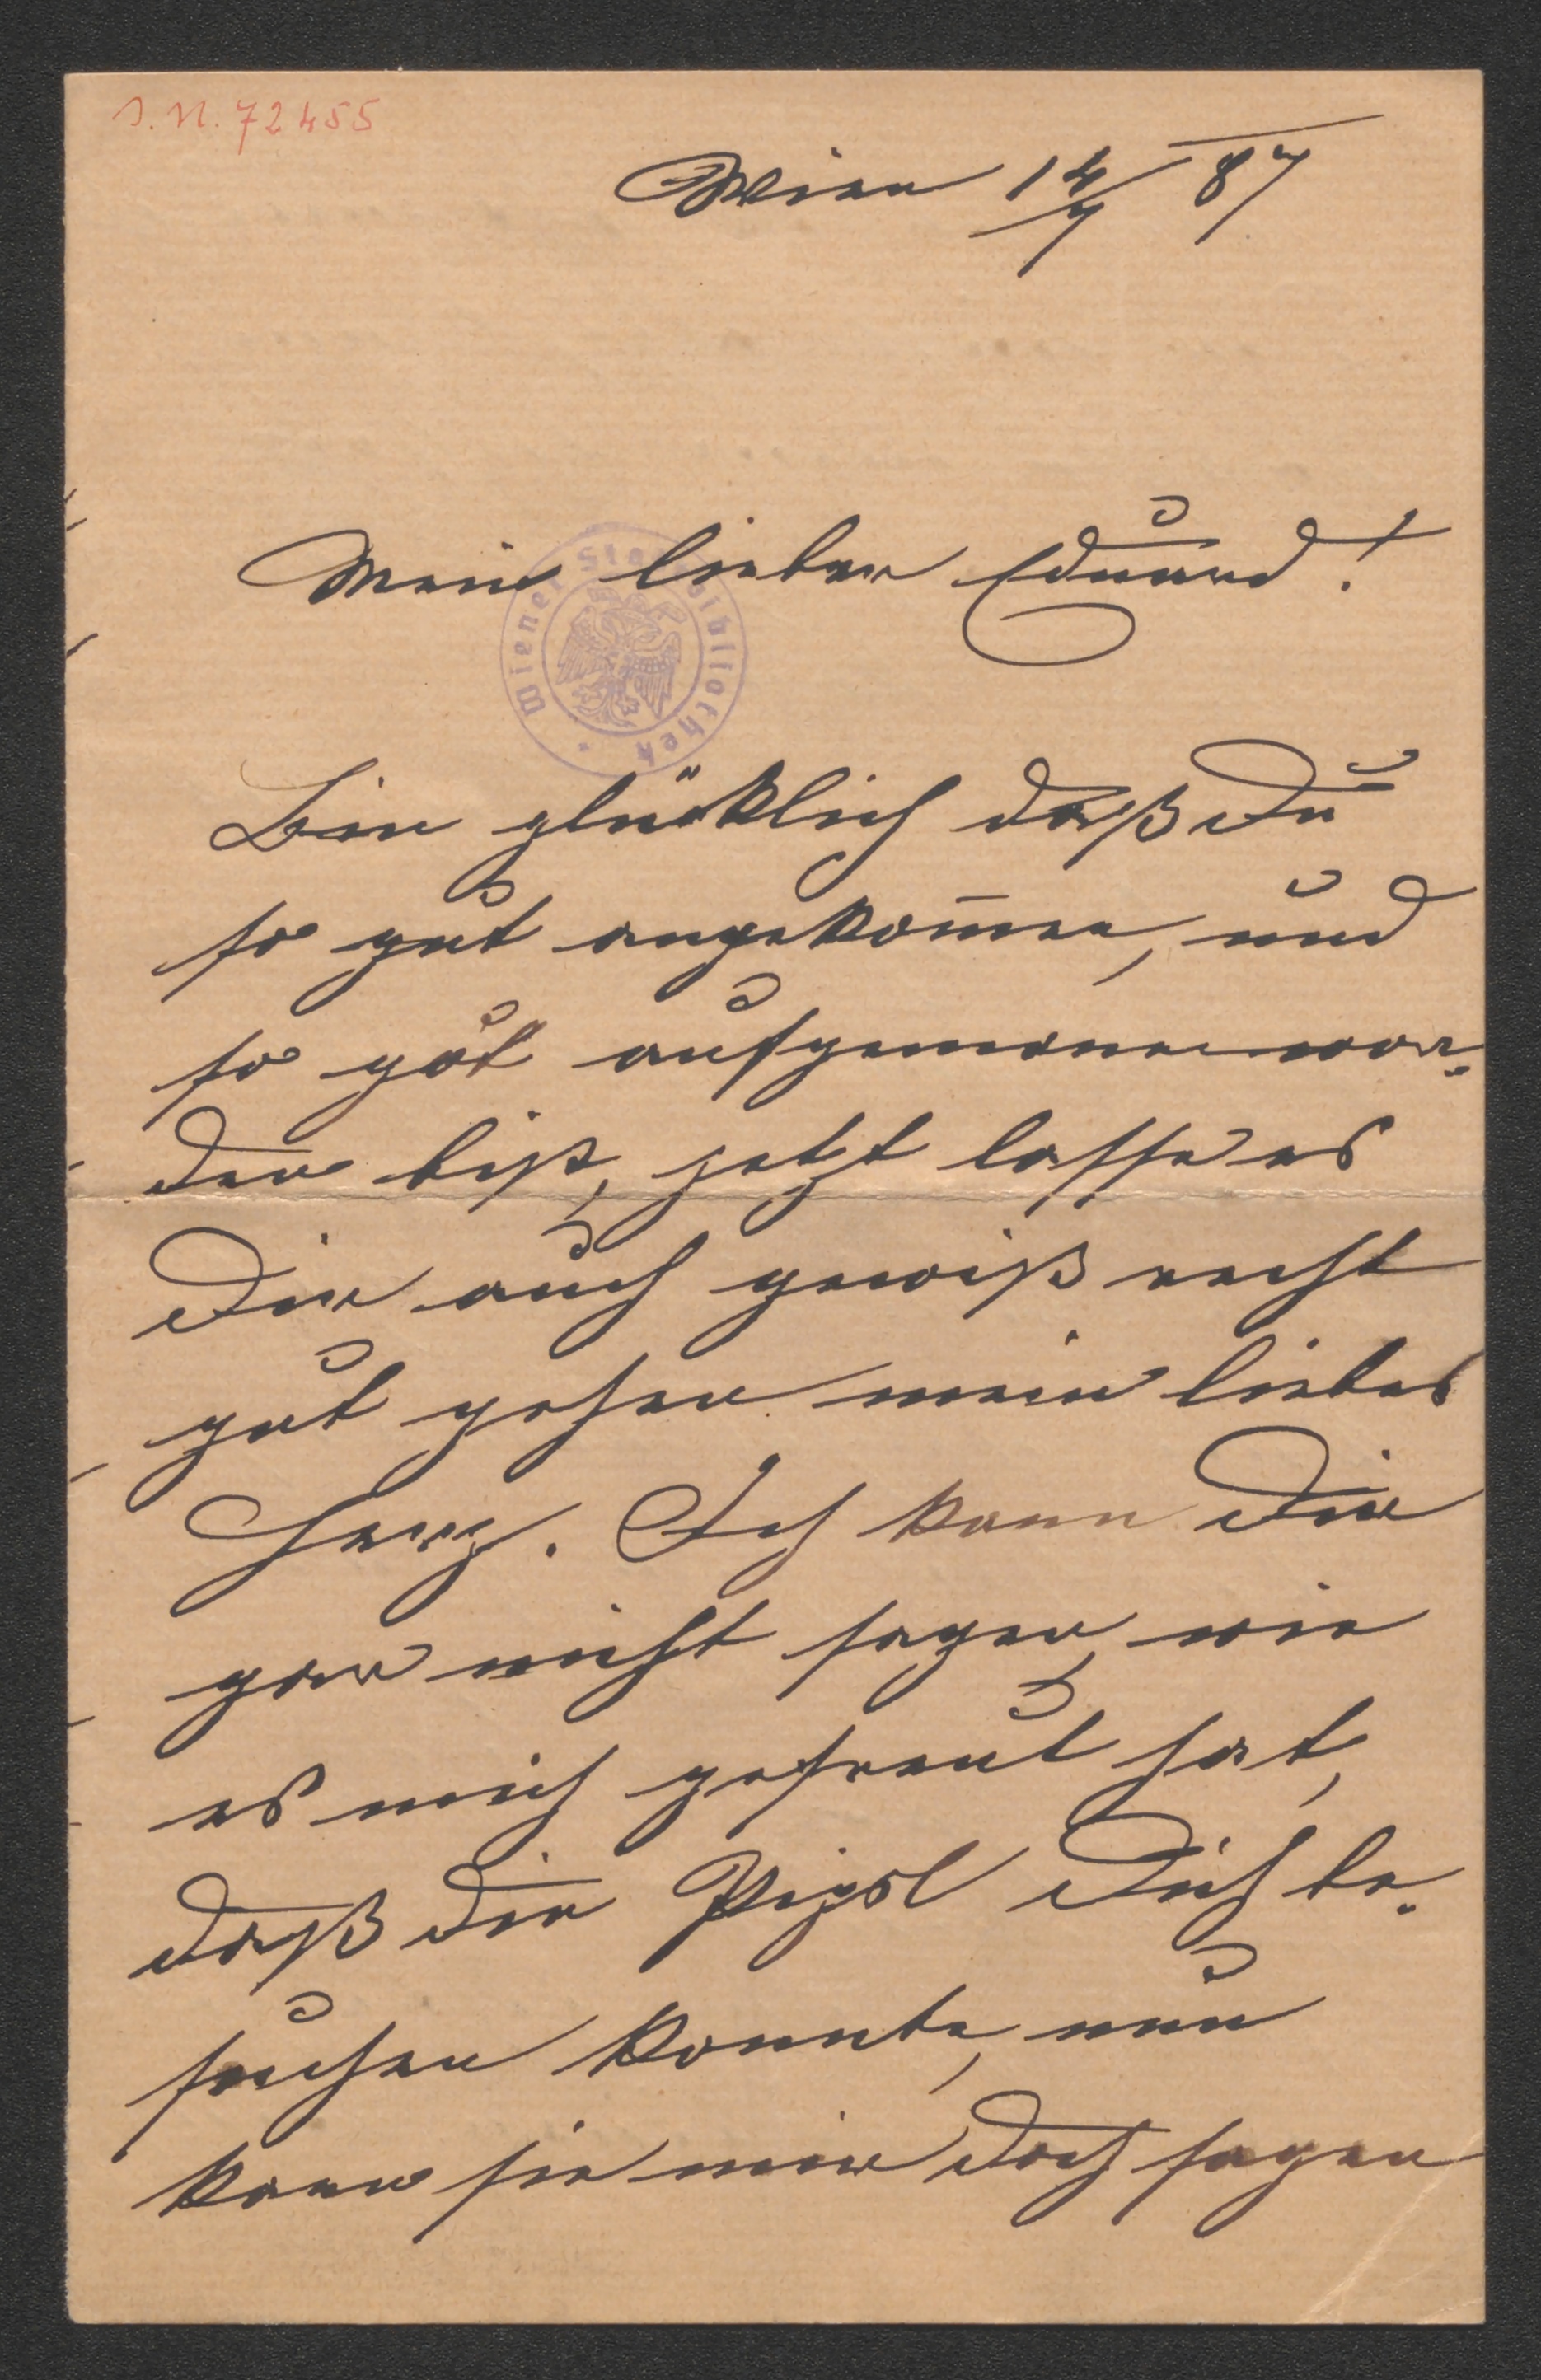 I.N. 72455
Wien 14/7 87
Mein lieber Eduard!
Wiener Stadtbibliothek
Bin glücklich daß Du
so gut angekom̅en, und
so gut aufgenomen wor-
den bist, jetzt lasse es
Dir auch gewiß recht
gut gehen mein liebes
Herz. Ich kann Dir
gar nicht sagen, wie
es mich gefreut hat,
daß die Dich be-
suchen konnte, nun
kann sie mir doch sagen